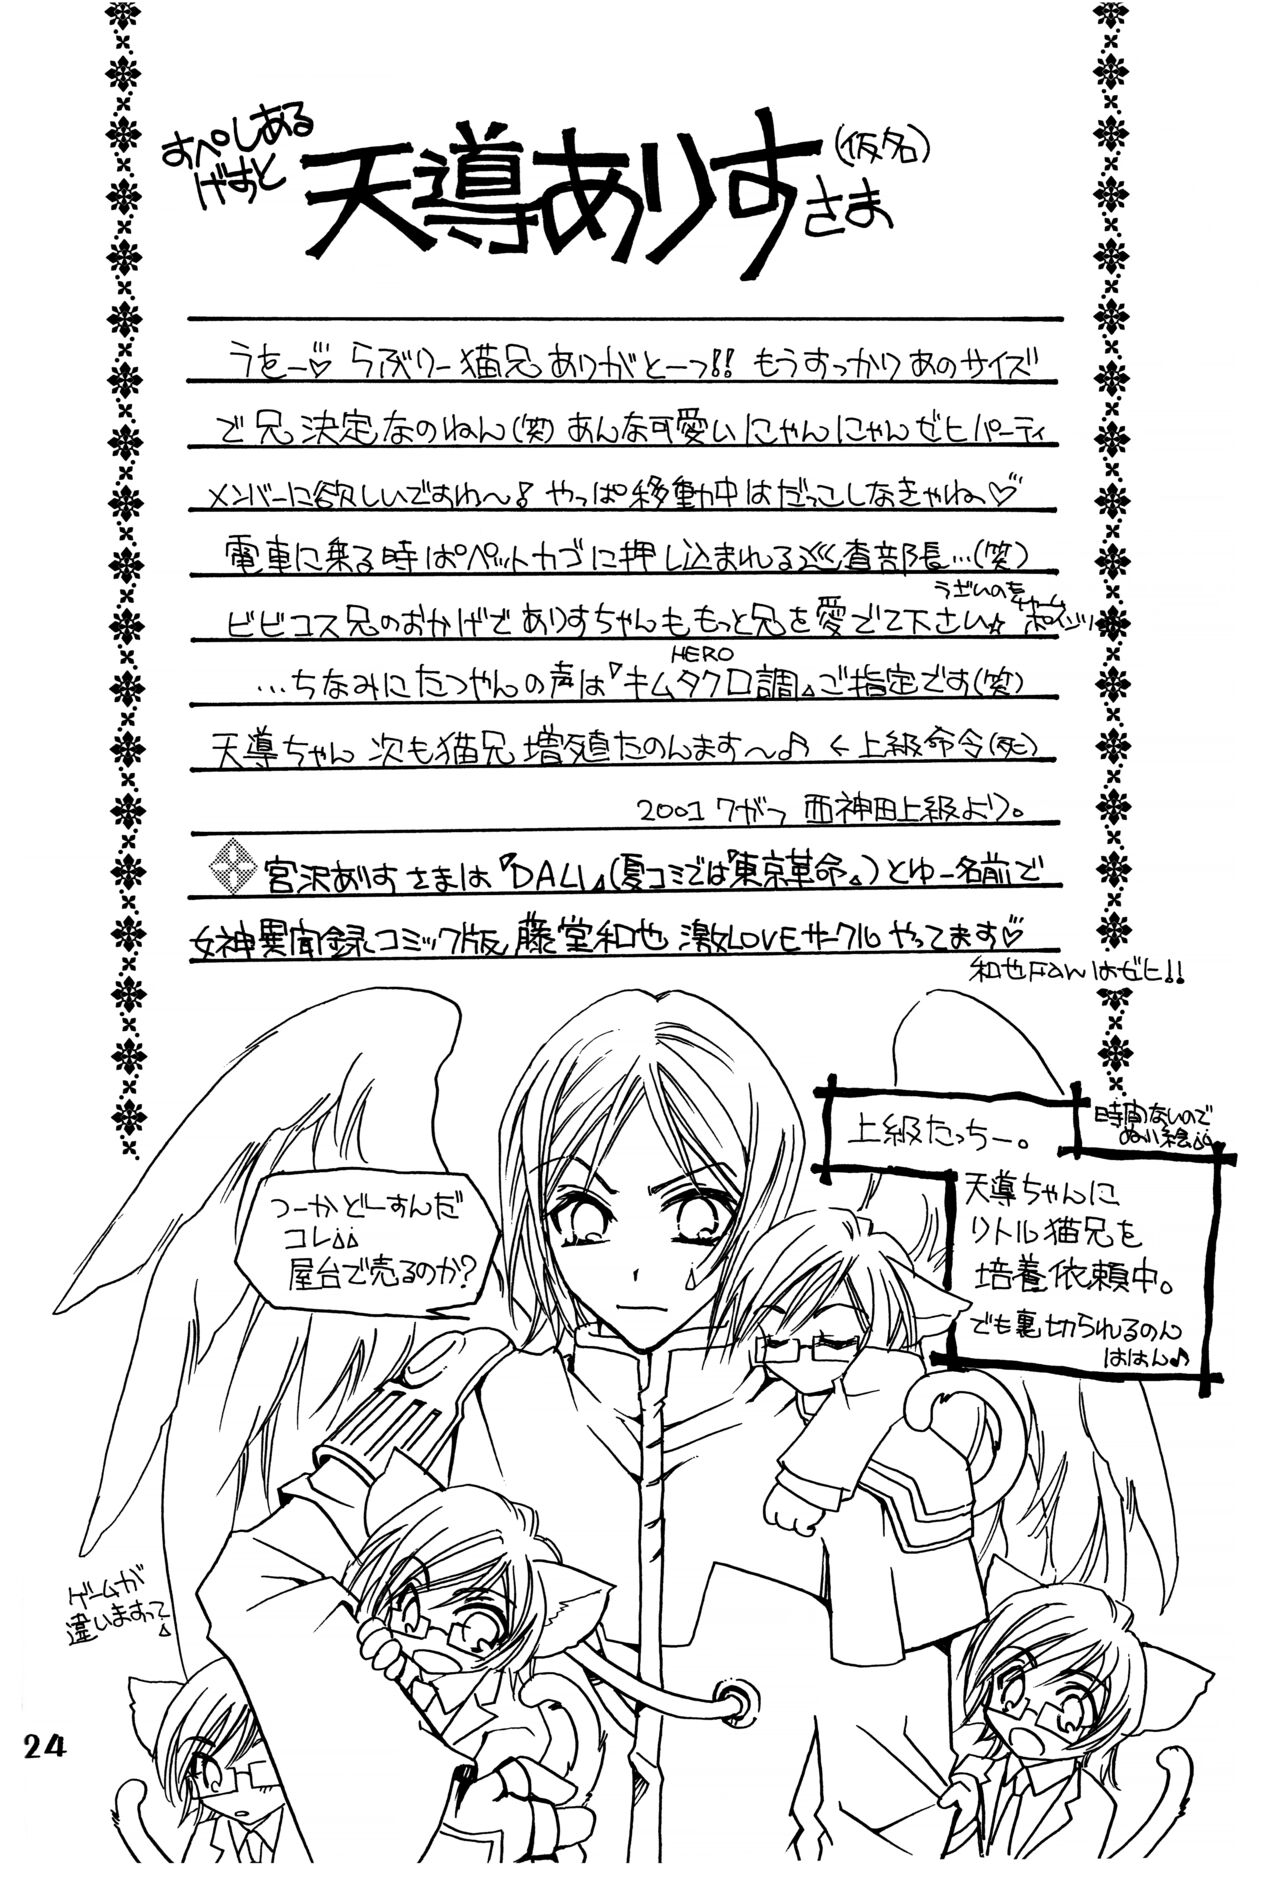 すぺしある
げすと
天導ありす
(仮名)
さま
うをー♡ らぶりー猫兄ありがとーっ!! もうすっかりあのサイズ
で兄決定なのねん(笑) あんな可愛いにゃんにゃんゼヒパーティ
メンバーに欲しいですわ〜! やっぱ移動中はだっこしなきゃね♡
電車に乗る時はペットカゴに押し込まれる巡査部長…(笑)
ビビコス兄のおかげでありすちゃんももっと兄を愛でて下さい☆
うざいの素
チャーム
ポインツ
HERO
…ちなみにたつやんの声は『キムタク口調』ご指定です(笑)
天導ちゃん 次も猫兄増殖たのんます〜♪ ←上級命令(死)
2001 7がつ 西神田上級より。
宮沢ありすさまは『DALI』(夏コミでは『東京革命』)とゆー名前で
女神異聞録コミック版 藤堂和也 激LOVEサークルやってます♡
和也Fanはゼヒ!!
上級たっちー。
時間ないので
ぬり絵
天導ちゃんに
リトル猫兄を
培養依頼中。
でも裏切られるのん
ははん♪
つーかどーすんだ
コレ
屋台で売るのか?
ゲームが
違いますって
24